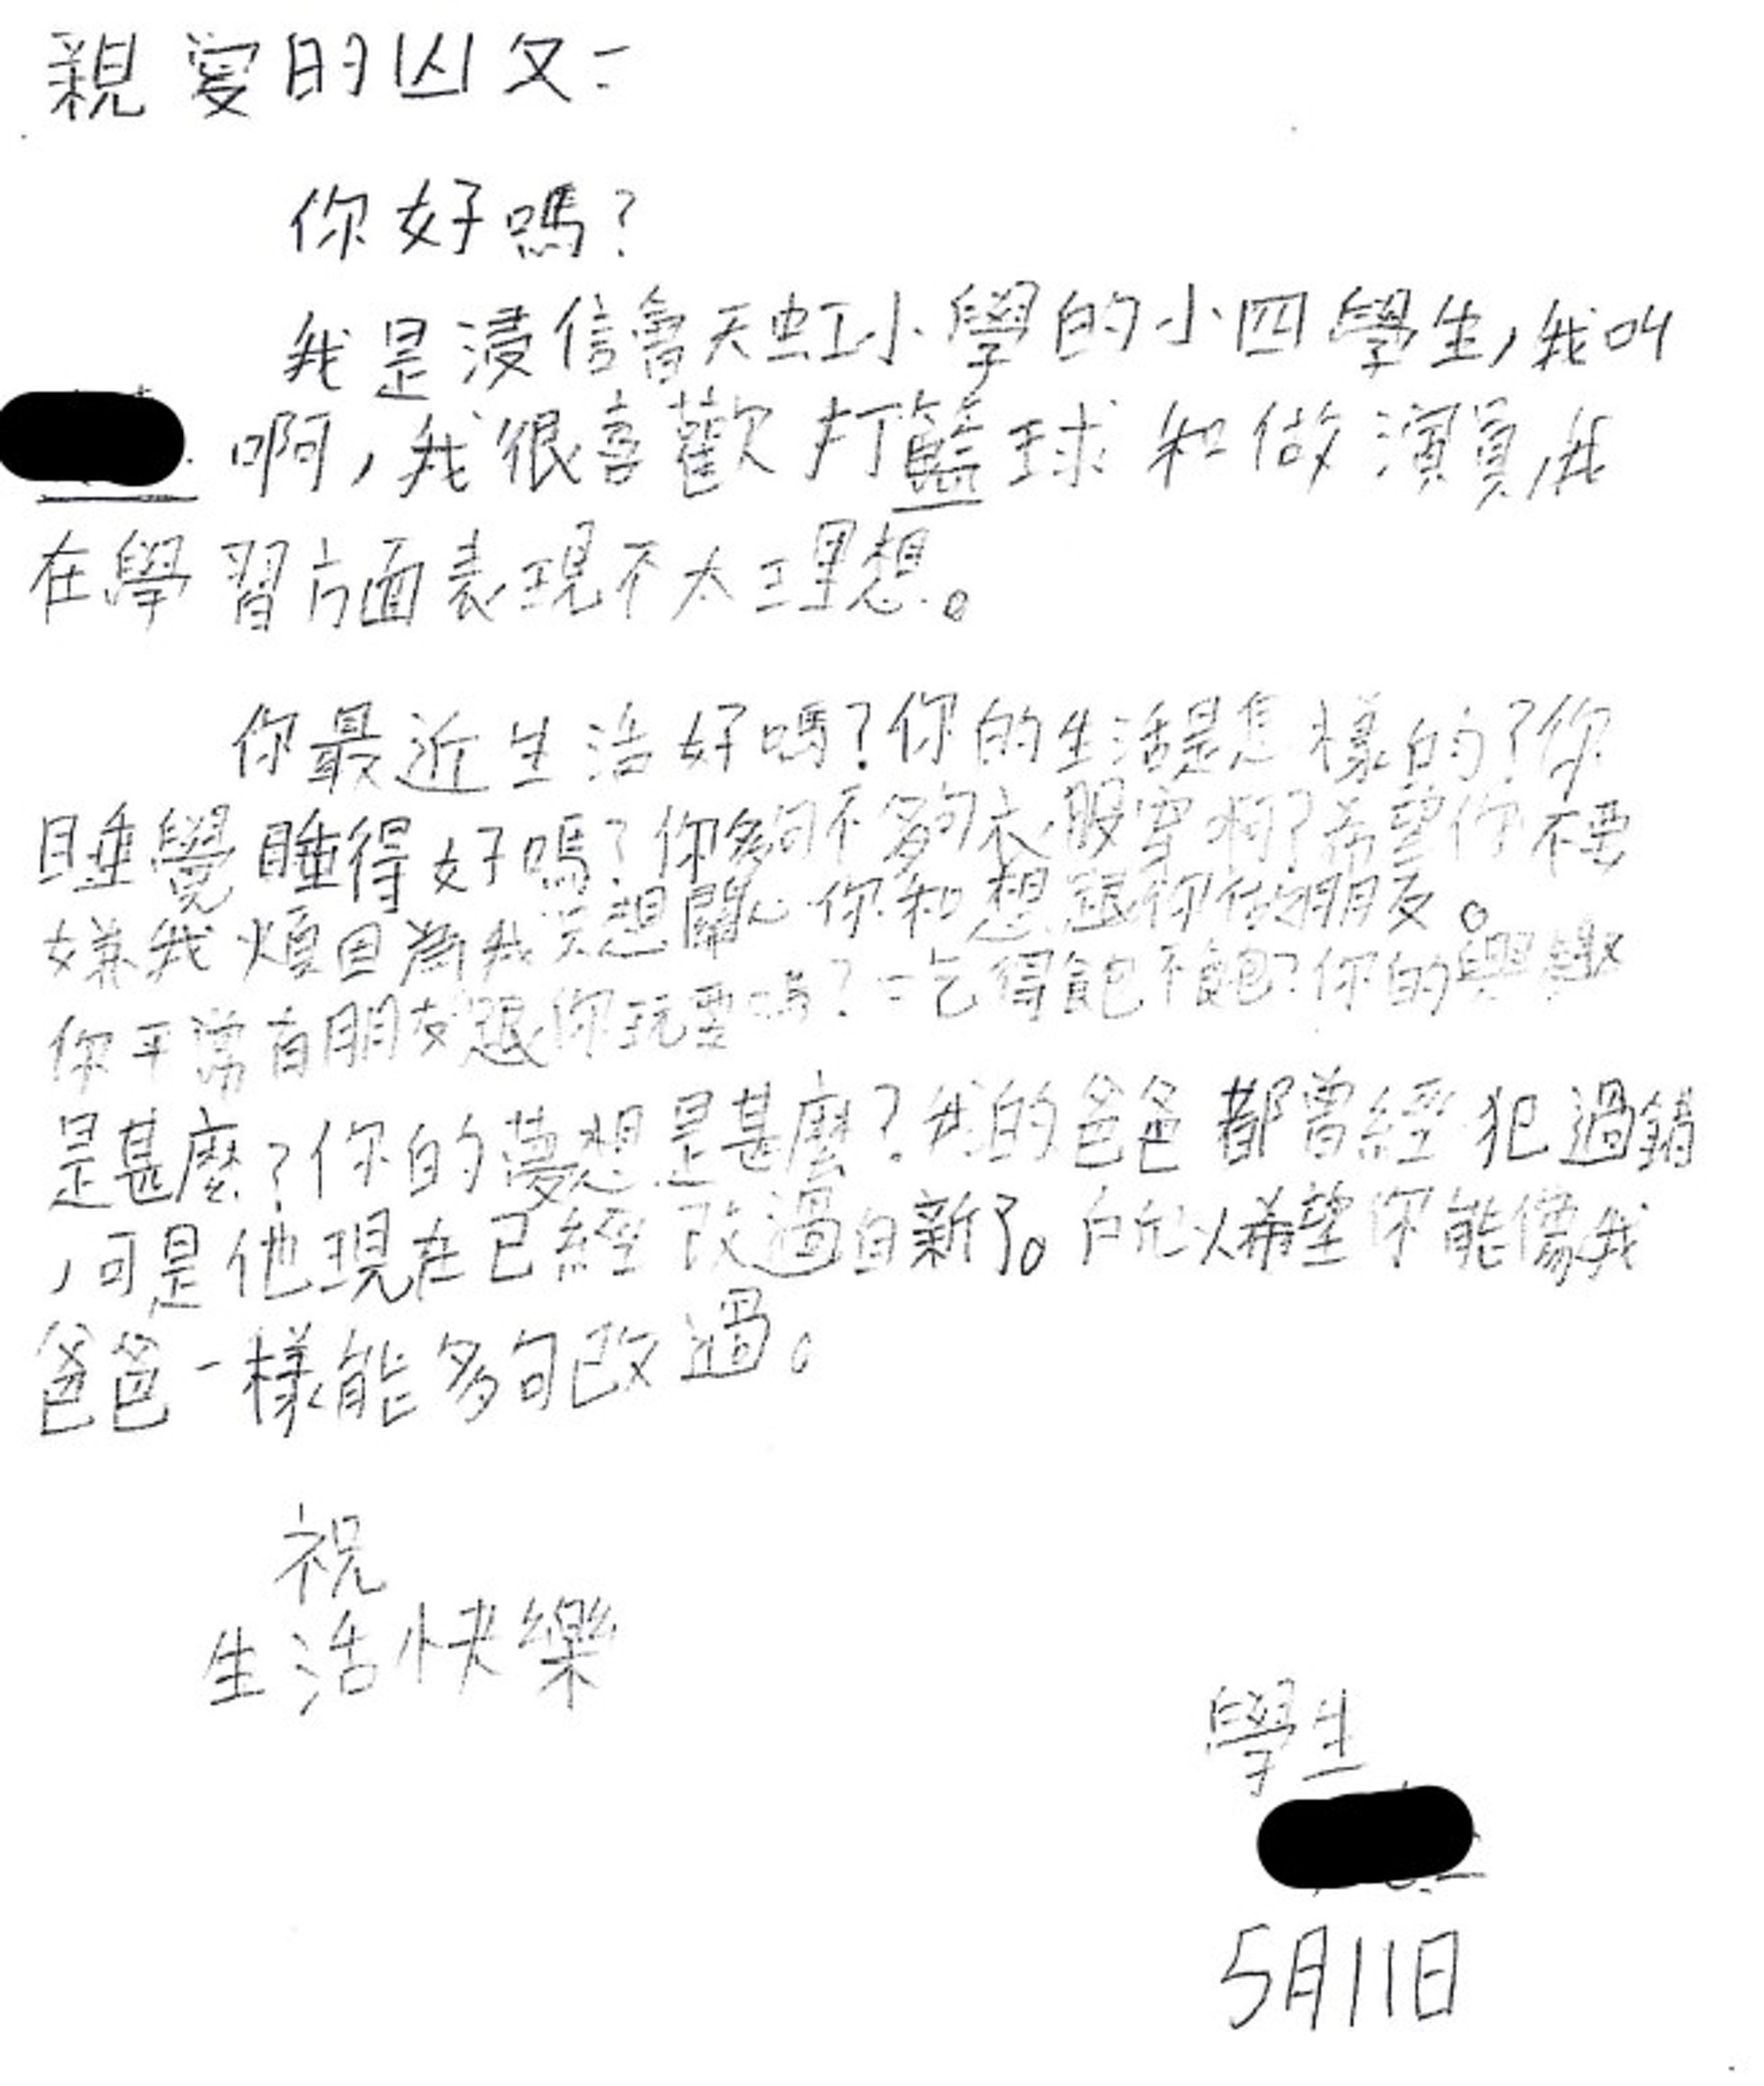 親愛的囚友:
你好嗎?
我是浸信會天虹小學的小四學生,我叫
啊,我很喜歡打籃球和做演員,我
在學習方面表現不太理想。
你最近生活好嗎?你的生活是怎樣的?你
睡覺睡得好嗎?你夠不夠衣服穿啊?希望你不要
嫌我煩因為我只想關心你和想跟你做朋友。
你平常有朋友跟你玩耍嗎?吃得飽不飽?你的興趣
是甚麼?你的夢想是甚麼?我的爸爸都曾經犯過錯
,可是他現在已經改過自新了。所以希望你能像我
爸爸一樣能夠改過。
祝
生活快樂
學生
5月11日